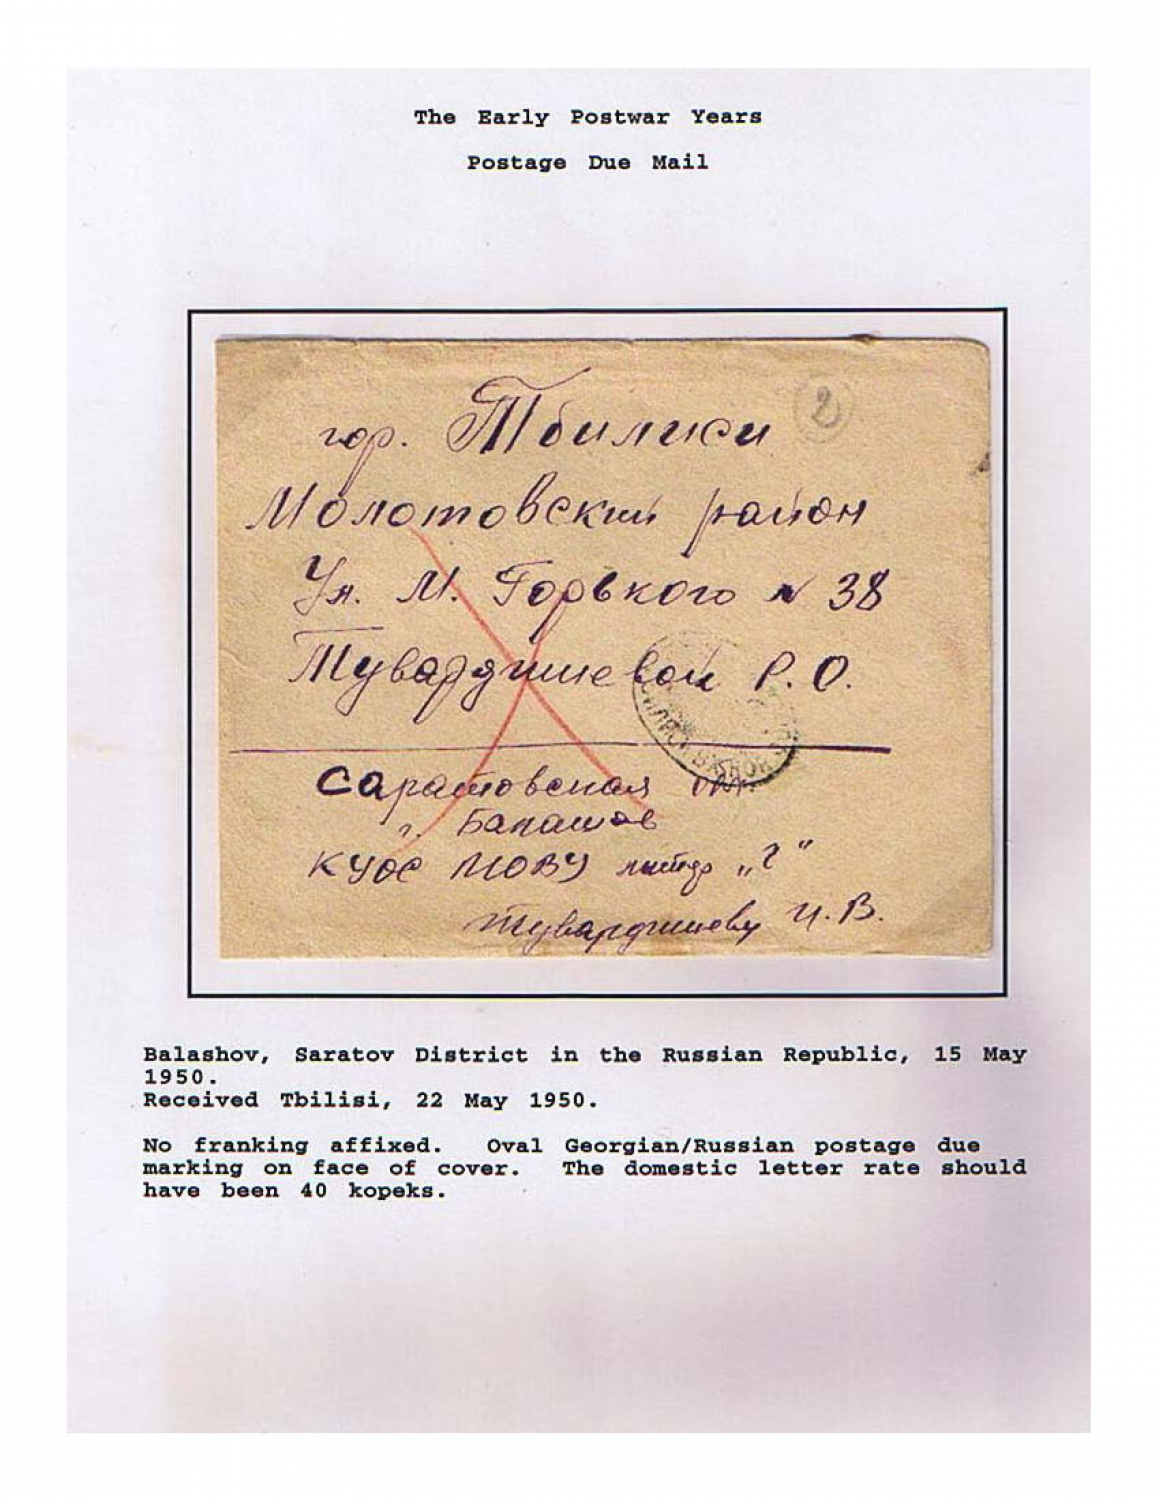 The Early Postwar Years
Postage Due Mail
2
гор. Тбилиси
Молотовский район
Ул. М. Горького N 38
Туварджиевой Р. О.
Саратовская обл.
г. Балашов
КУОС МОВУ литер „Г"
Туварджиеву И. В.
Balashov, Saratov District in the Russian Republic, 15 May
1950.
Received Tbilisi, 22 May 1950.
No franking affixed. Oval Georgian/Russian postage due
marking on face of cover. The domestic letter rate should
have been 40 kopeks.